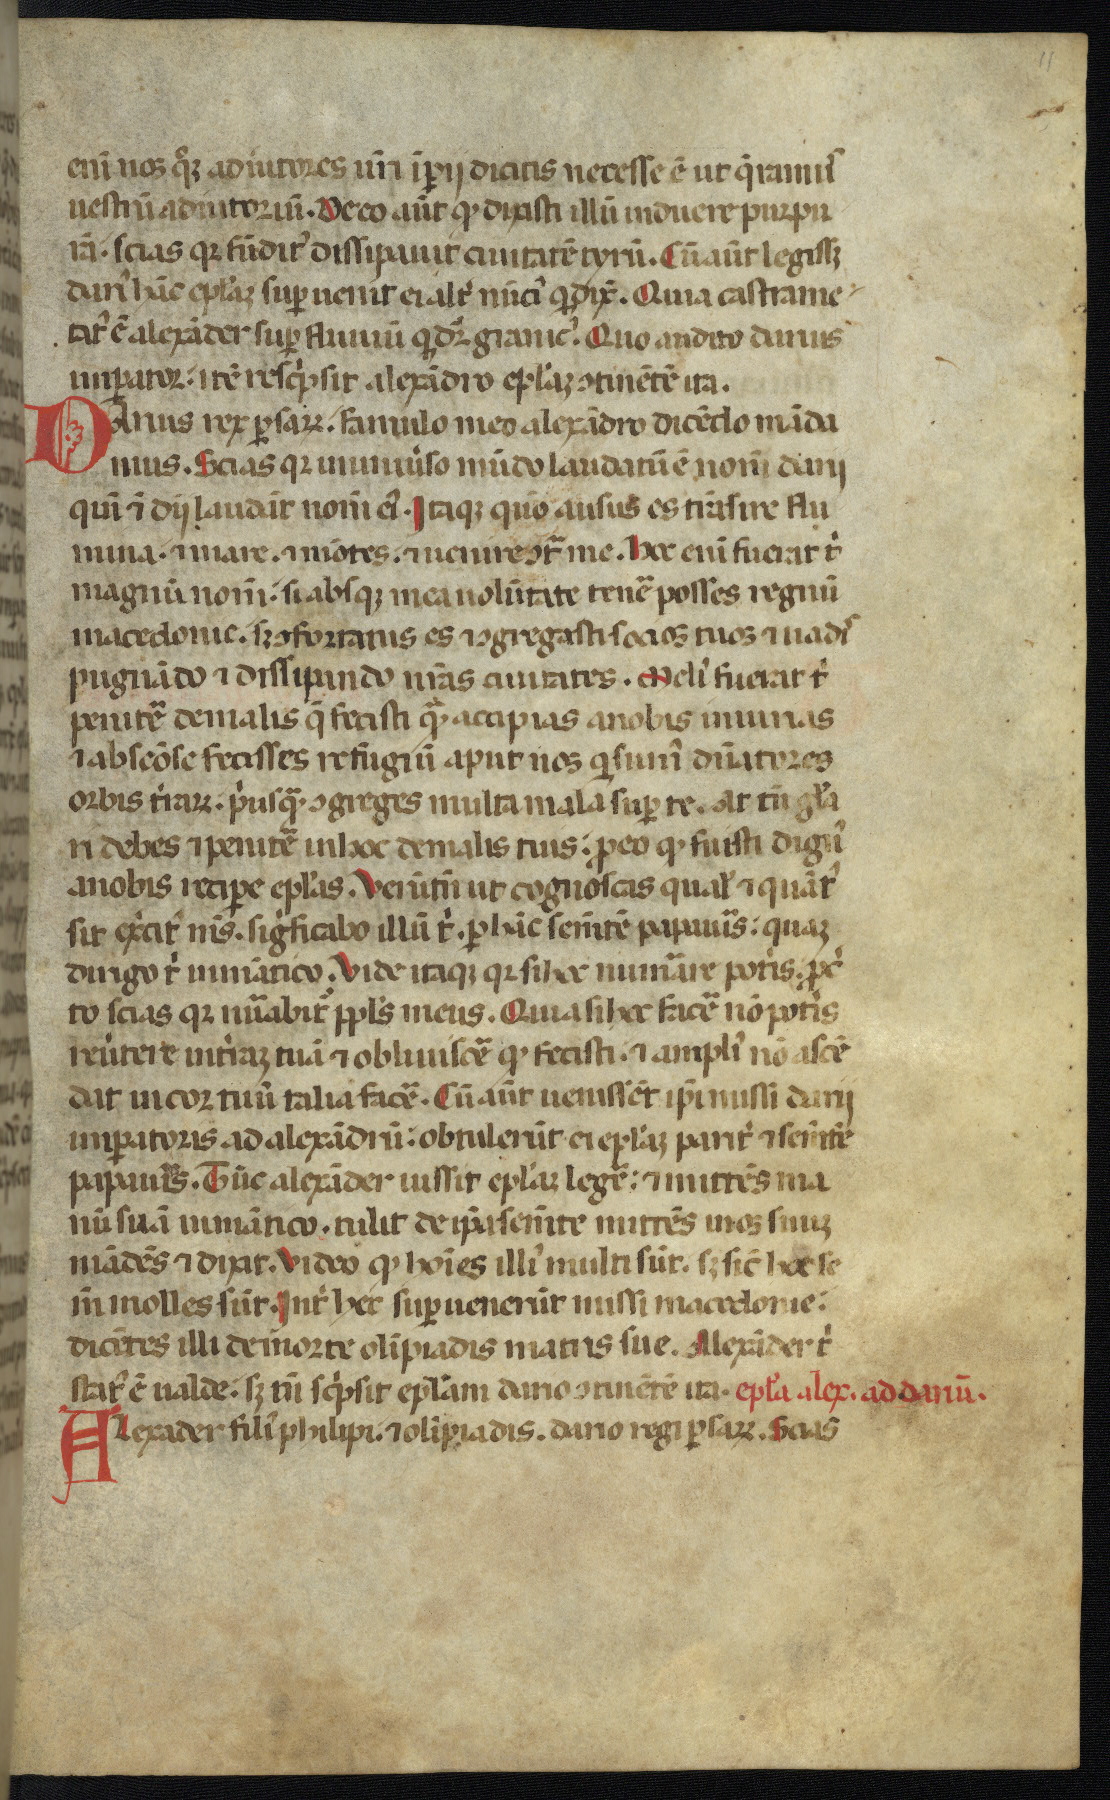 11
eni̅ nos qͦs adiutores ur̅i i̅perij dicitis necesse e̅ ut q̅ramus
uestru̅ adiutoriu̅. De eo au̅t qd dixisti illu̅ induere purpu
ra̅. scias qꝛ fu̅dit᷒ dissipauit ciuitate̅ tyru̅. Cu̅ au̅t legissꝫ
dari᷒ ha̅c epl̅aꝫ superuenit ei alt᷒ nu̅ci᷒ q dix̅. Quia castrame
tat᷒ e̅ alexa̅der super fluuiu̅ q dr̅ granic᷒. Quo audito darius
imꝑator. ite̅ resc̓psit alexa̅dro epl̅aꝫ ꝯtine̅te̅ ita.
DArius rex ꝑsaꝝ. famulo meo alexa̅dro dice̅do ma̅da
mus. Scias qꝛ in uniu̓so mu̅do laudatu̅ e̅ nom̅ darij
qui̅ ⁊ dij lauda̅t nom̅ ei᷒. Itaqꝫ quo̅ ausus es tra̅sire flu
mina. ⁊ mare. ⁊ mo̅tes. ⁊ uenire ꝯtͣ me. Hoc eni̅ fuerat t̓
magnu̅ nom̅. si absqꝫ mea uolu̅tate tene̅ posses regnu̅
macedonie. sꝫ ꝯfortatus es ⁊ ꝯgregasti socios tuos ⁊ uadis
pugna̅do ⁊ dissipando nr̅as ciuitates. Meli᷒ fuerat t̓
penite̅ de malis q̅ fecisti qͣ̅ accipias a nobis iniurias
⁊ abseo̅se fecisses refugiu̅ aput nos q sumus dn̅atores
orbis t̓raꝝ. p̓usqͣ̅ ꝯgreges multa mala super te. At tn̅ gl̅a
ri debes ⁊ penite̅ in hoc de malis tuis. ꝓ eo qd fuisti dignu᷒
a nobis recipe epl̅as. Veru̅tn̅ ut cognoscas qual᷒ ⁊ qua̅t᷒
sit ex̓cit᷒ nr̅s. sig̓ficabo illu̅ t̓. ꝑ ha̅c seme̅te̅ papauis̅. quaꝫ
dirigo t̓ in ma̅tico. Vide itaqꝫ qꝛ si hec numͣre pot̓is. ꝓc̓
to scias qꝛ nu̅abit᷒ ppl̅s meus. Quia si hec face̅ no̅ pot̓is
reu̓tere in t̓raꝫ tua̅ ⁊ obliuisce̅ qd fecisti. ⁊ ampli᷒ no̅ asce̅
dat in cor tuu̅ talia face̅. Cu̅ au̅t uenisse̅t ip̅i missi darij
imꝑatoris ad alexa̅dru̅. obtuleru̅t ei epl̅aꝫ parit᷒ ⁊ seme̅te̅
papauis̅. Tu̅c alexa̅der iussit epl̅aꝫ lege̅. ⁊ mitte̅s ma
nu̅ sua̅ in ma̅tico. tulit de ip̅a seme̅te mitte̅s in os suuꝫ
ma̅de̅s ⁊ dixit. Video qd ho̅i̅es illi᷒ multi su̅t. sꝫ sic̅ hec se
mi̅ molles su̅t. Int̓ hec superueneru̅t missi macedonie.
dice̅tes illi de morte oli̅piadis matris sue. Alexa̅der t̓
stat᷒ e̅ ualde. sꝫ tn̅ sc̓psit epl̅am dario ꝯtine̅te̅ ita. epl̅a alex. ad dariu̅.
Alexader fili᷒ philipi. ⁊ oli̅piadis. dario regi ꝑsaꝝ. Scias